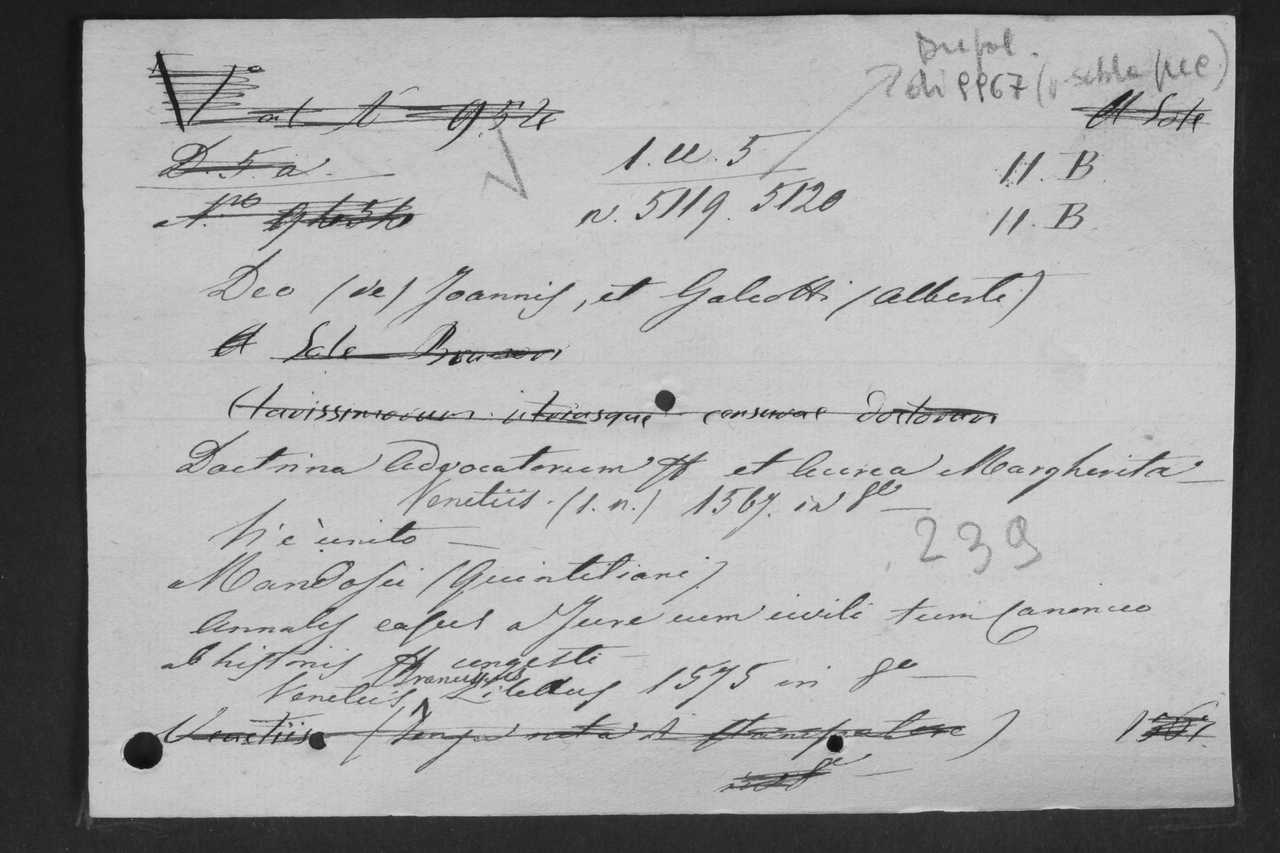 Dupl.
di 9967 (v. scheda prec.)
Vol N 954
A Sole
D. 5. a.
1. u. 5
11. B
N.ro
n. 5119. 5120
11. B
Deo (de) Joannis, et Galeotti (Alberti)
A Sole
Clarissimorum utriusque censurae doctorum
Doctrina Advocatorum ff et Aurea Margherita
Venetiis. (s. n.) 1567. in 8o
V'è unito
239
Mandosii (Quintiliani)
Annales casus a Jure cum civili tum Canonico
ab historiis ff congesti
Venetiis, Franciscus Zilettus 1575 in 8o
Venetiis (Senza nota di stampatore) 1567
in 8o